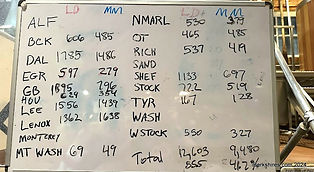 LD MM
ALF
BCK 606 485
DAL 1785 1486
EGR 597 279
GB 1895 796
HOU 629 354
LEE 1556 1439
LENOX 1362 1638
MONTEREY
MT WASH 69 49
LD MM
NMARL 530 379
OT 465 485
RICH 537 419
SAND
SHEF 1133 697
STOCK 772 519
TYR 167 128
WASH
WSTOCK 550 327
Total 12,603 9,480
865 462%
2024